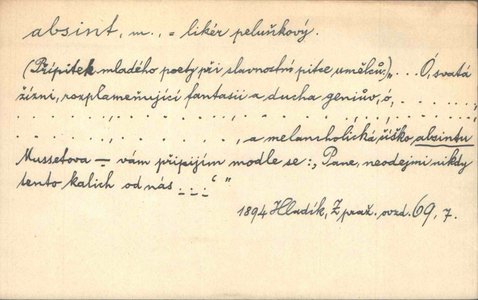 absint, m., = likér peluňkový.
(Přípitek mladého poety při slavnostní pitce umělců.) „... Ó, svatá
žízni, rozplameňující fantasii a ducha geniův, ó, . . . . . . ,
. . . . . . , . . . . . . . . . , . . . . . . . . . , . . . . . . ,
. . . . . . , . . . . . . . . . , a melancholická číško absintu
Mussetova — vám připíjím modle se: ‚Pane, neodejmi nikdy
tento kalich od nás ...‘“
1894 Hladík, Z praž. ovzd. 69, 7.